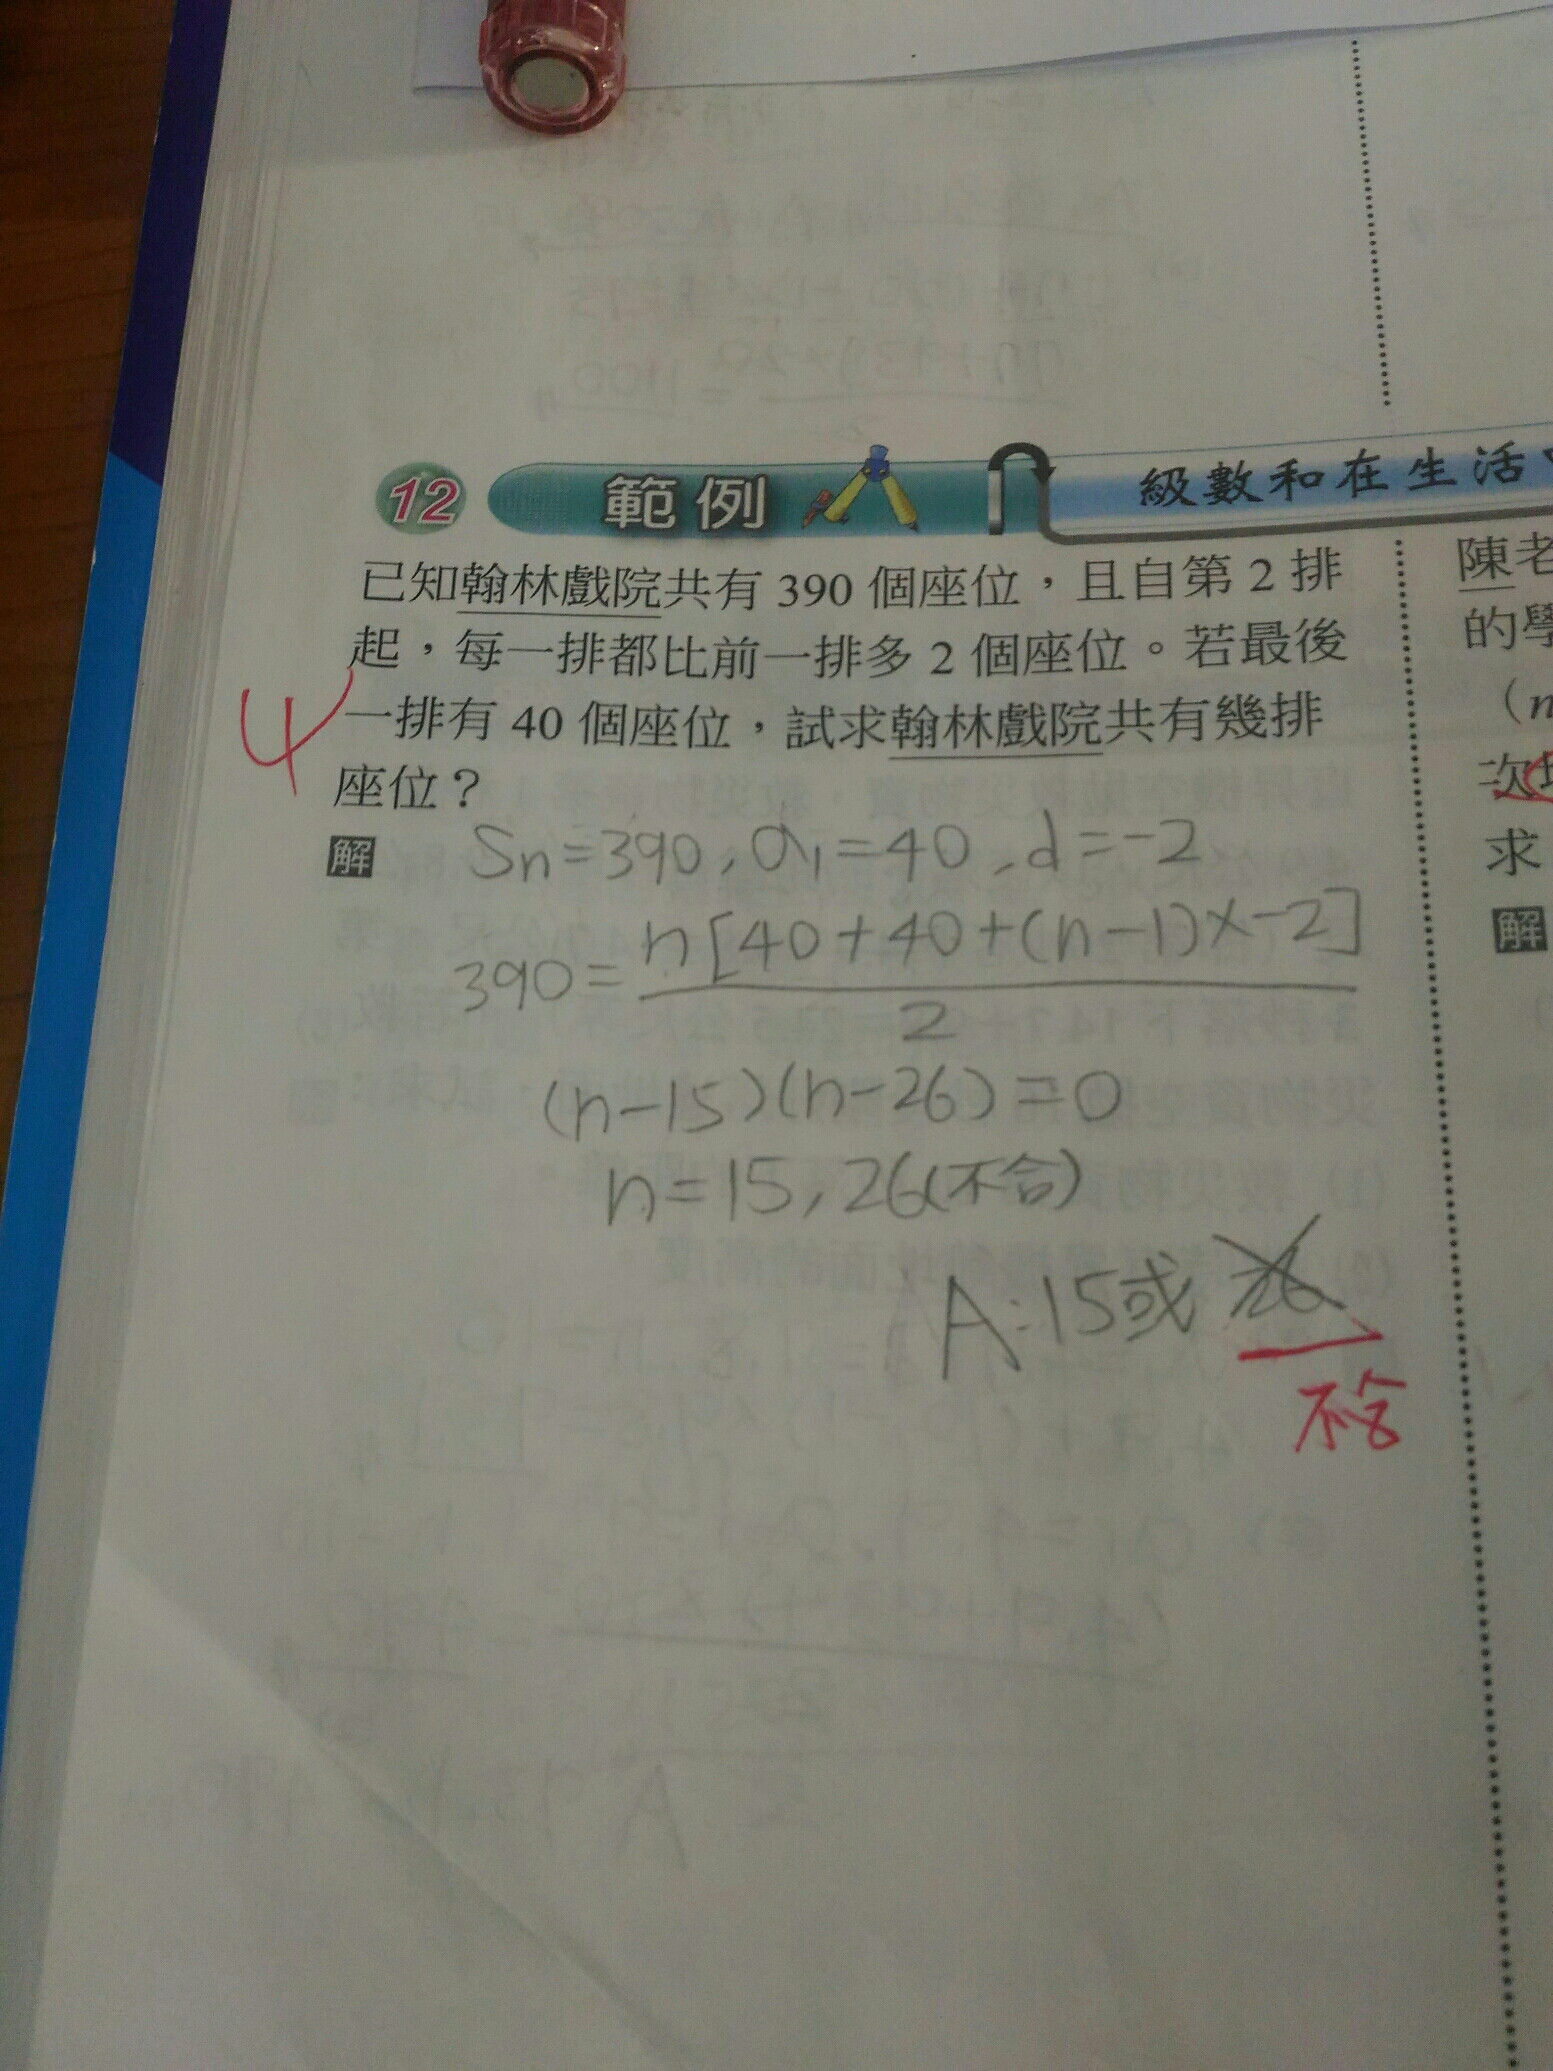 12 範例 級數和在生活
已知翰林戲院共有 390 個座位，且自第 2 排
起，每一排都比前一排多 2 個座位。若最後
一排有 40 個座位，試求翰林戲院共有幾排
座位？
4
解 Sn=390, a1=40, d=-2
390= n[40+40+(n-1)x-2] / 2
(n-15)(n-26)=0
n=15, 26(不合)
A:15或 26
不合
陳老
的學
(n
次
求
解